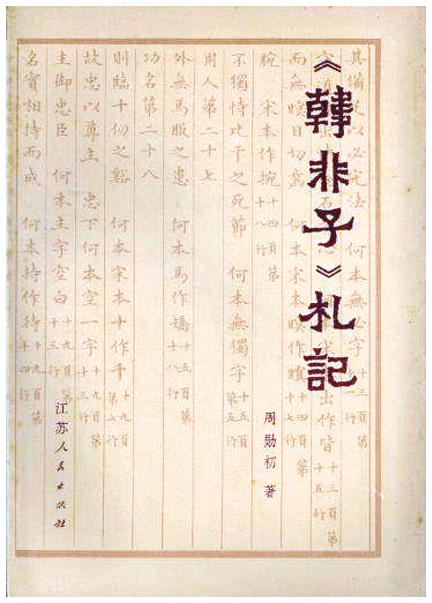 《韓非子》札記
周勋初 著
江苏人民出版社
何本無必字
出作皆
而無瞋目切齒
腕 宋本作捥 十四頁第十八行
不獨恃比干之死節 何本無獨字 十五頁第五行
用人第二十七
外無馬服之患 何本馬作矯
功名第二十八
則臨十仞之谿 何本宋本十作千 十九頁第七行
故忠以尊主 忠下何本空一字 十九頁第十三行
主御忠臣 何本主字空白 十九頁第十三行
名實相持而成 何本持作待 十九頁第十四行